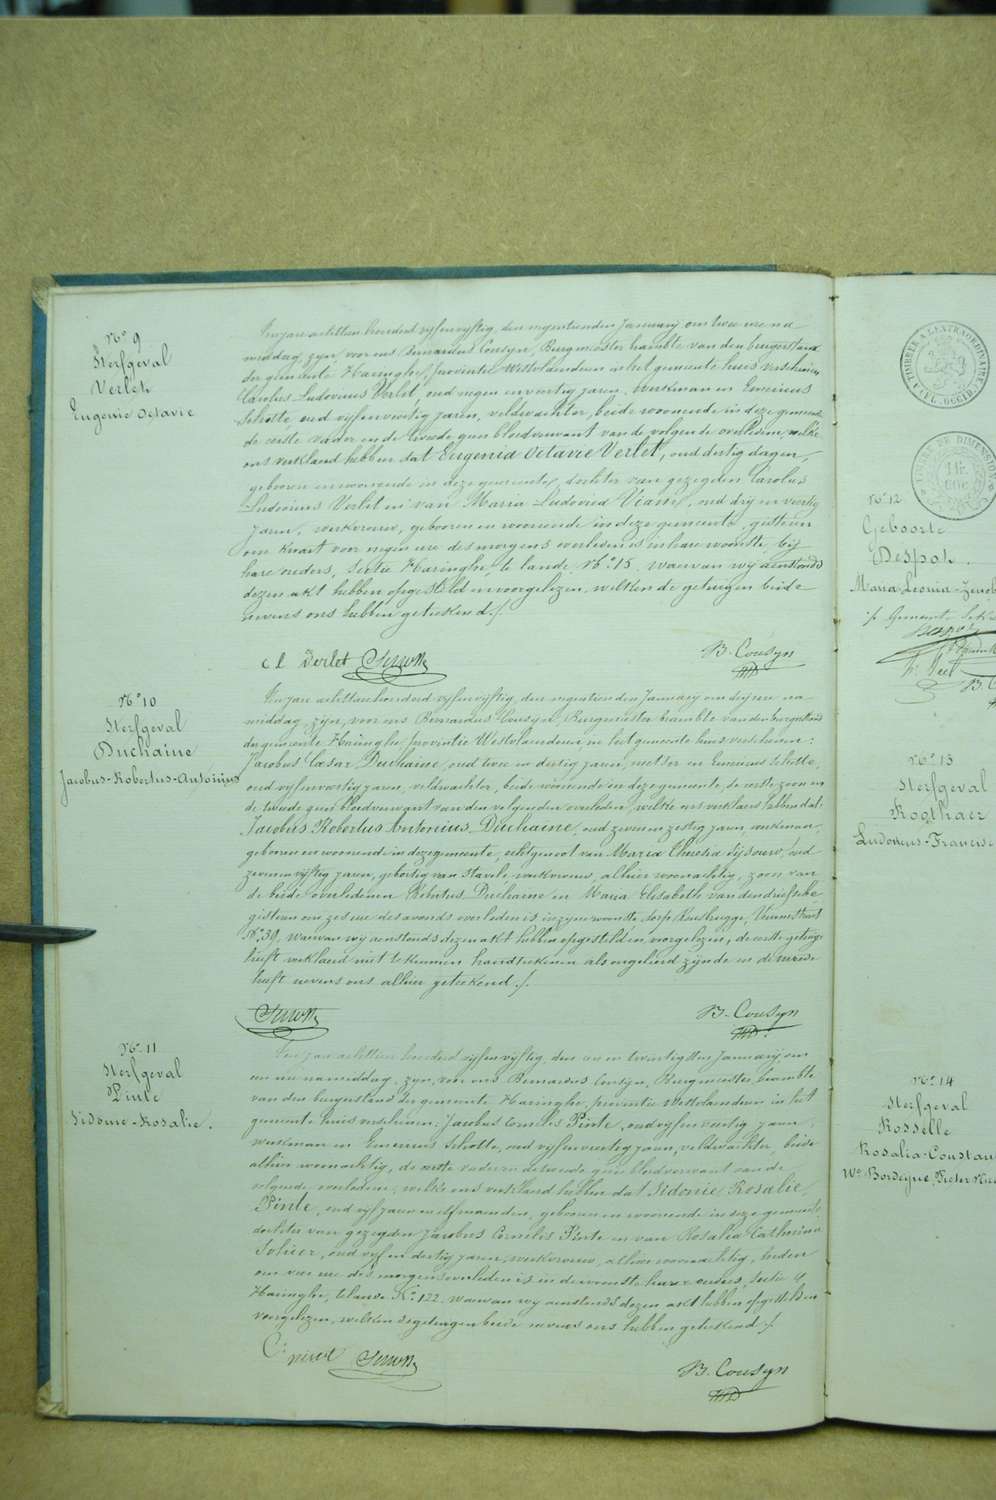 N° 9
Sterfgeval
Verlet
Eugenie Octavie
In jaer achttien honderd vyfenvyftig, den negentienden January om twee ure na
middag, zyn, voor ons Bernardus Cousyn, Burgmeester beambte van den burgerstand
der gemeente Haringhe, provintie Westvlaenderen in het gemeente huis verschenen
Carolus Ludovicus Verlet, oud negen en veertig jaren, werkman en Emericus
Schotte, oud vyfenveertig jaren, veldwachter, beide woonende in deze gemeente
de eerste vader en de tweede geen bloedverwant van de volgende overledene, welke
ons verklaerd hebben dat Eugenia Octavie Verlet, oud dertig dagen,
geboren en woonende in deze gemeente, dochter van gezegden Carolus
Ludovicus Verlet en van Maria Ludovica, oud dry en veertig
jaren, werkvrouw, geboren en woonende in deze gemeente, gisteren
om kwart voor negen ure des morgens overleden is in hare woonste, by
hare ouders, Sectie Haringhe, te lande, N° 15. Waervan wy aenstonds
dezen akt hebben opgesteld en voorgelezen, welken de getuigen beide
nevens ons hebben geteekend ./.
c l Verlet
B. Cousyn
N° 10
Sterfgeval
Duchaine
Jacobus-Robertus-Antonius
In jaer achttienhonderd vyfenvyftig, den negentienden January om dry ure na
middag, zyn, voor ons Bernardus Cousyn, Burgmeester beambte van den burgerstand
der gemeente Haringhe provintie Westvlaenderen, in het gemeente huis verschenen:
Jacobus Cesar Duchaine, oud twee en dertig jaren, metser en Emericus Schotte,
oud vyfenveertig jaren, veldwachter, beide woonende in deze gemeente, de eerste zoon en
de tweede geen bloedverwant van den volgenden overleden, welke ons verklaerd hebben dat:
Jacobus Robertus Antonius Duchaine, oud zeven en zestig jaren, werkman,
geboren en woonende in deze gemeente, echtgenoot van Maria Theresia, oud
zevenenvyftig jaren, geboortig van Stavele werkvrouw, alhier woonachtig, zoon van
de beide overledenen Robertus Duchaine en Maria Elisabeth Vandendriessche,
gisteren om zes ure des avonds overleden is in zyne woonste, dorp Rousbrugge,
N° 39, Waervan wy aenstonds dezen akt hebben opgesteld en voorgelezen, de eerste getuige
heeft verklaerd niet te kunnen handteekenen als ongeleerd zynde en de tweede
heeft nevens ons alhier geteekend ./.
B. Cousyn
N° 11
Sterfgeval
Pinte
Sidonie-Rosalie.
In jaer achttien honderd vyfenvyftig, den een en twintigsten January, om
een ure namiddag, zyn, voor ons Bernardus Cousyn, Burgmeester, beambte
van den burgerstand der gemeente Haringhe, provintie Westvlaenderen in het
gemeente huis verschenen: Jacobus Cornelis Pinte, oud vyfenveertig jaren,
werkman en Emericus Schotte, oud vyfenveertig jaren, veldwachter, beide
alhier woonachtig, de eerste vader en de tweede geen bloedverwant van de
volgende overledene, welke ons verklaerd hebben dat Sidonie Rosalie
Pinte, oud vyf jaren en elf maenden, geboren en woonende in deze gemeente,
dochter van gezegden Jacobus Cornelis Pinte en van Rosalia Catharina
Sohier, oud vyf en dertig jaren, werkvrouw, alhier woonachtig, heden
om vier ure des morgens overleden is in de woonste harer ouders, Sectie
Haringhe, te lande N° 122. Waervan wy aenstonds dezen akt hebben opgesteld en
voorgelezen, welken de getuigen beide nevens ons hebben geteekend ./.
B. Cousyn
N° 12
Geboorte
Despot.
Maria Leonia
B. C
N° 13
Sterfgeval
Ludovicus-Francisc
N° 14
Sterfgeval
Rosselle
Rosalia-Constan